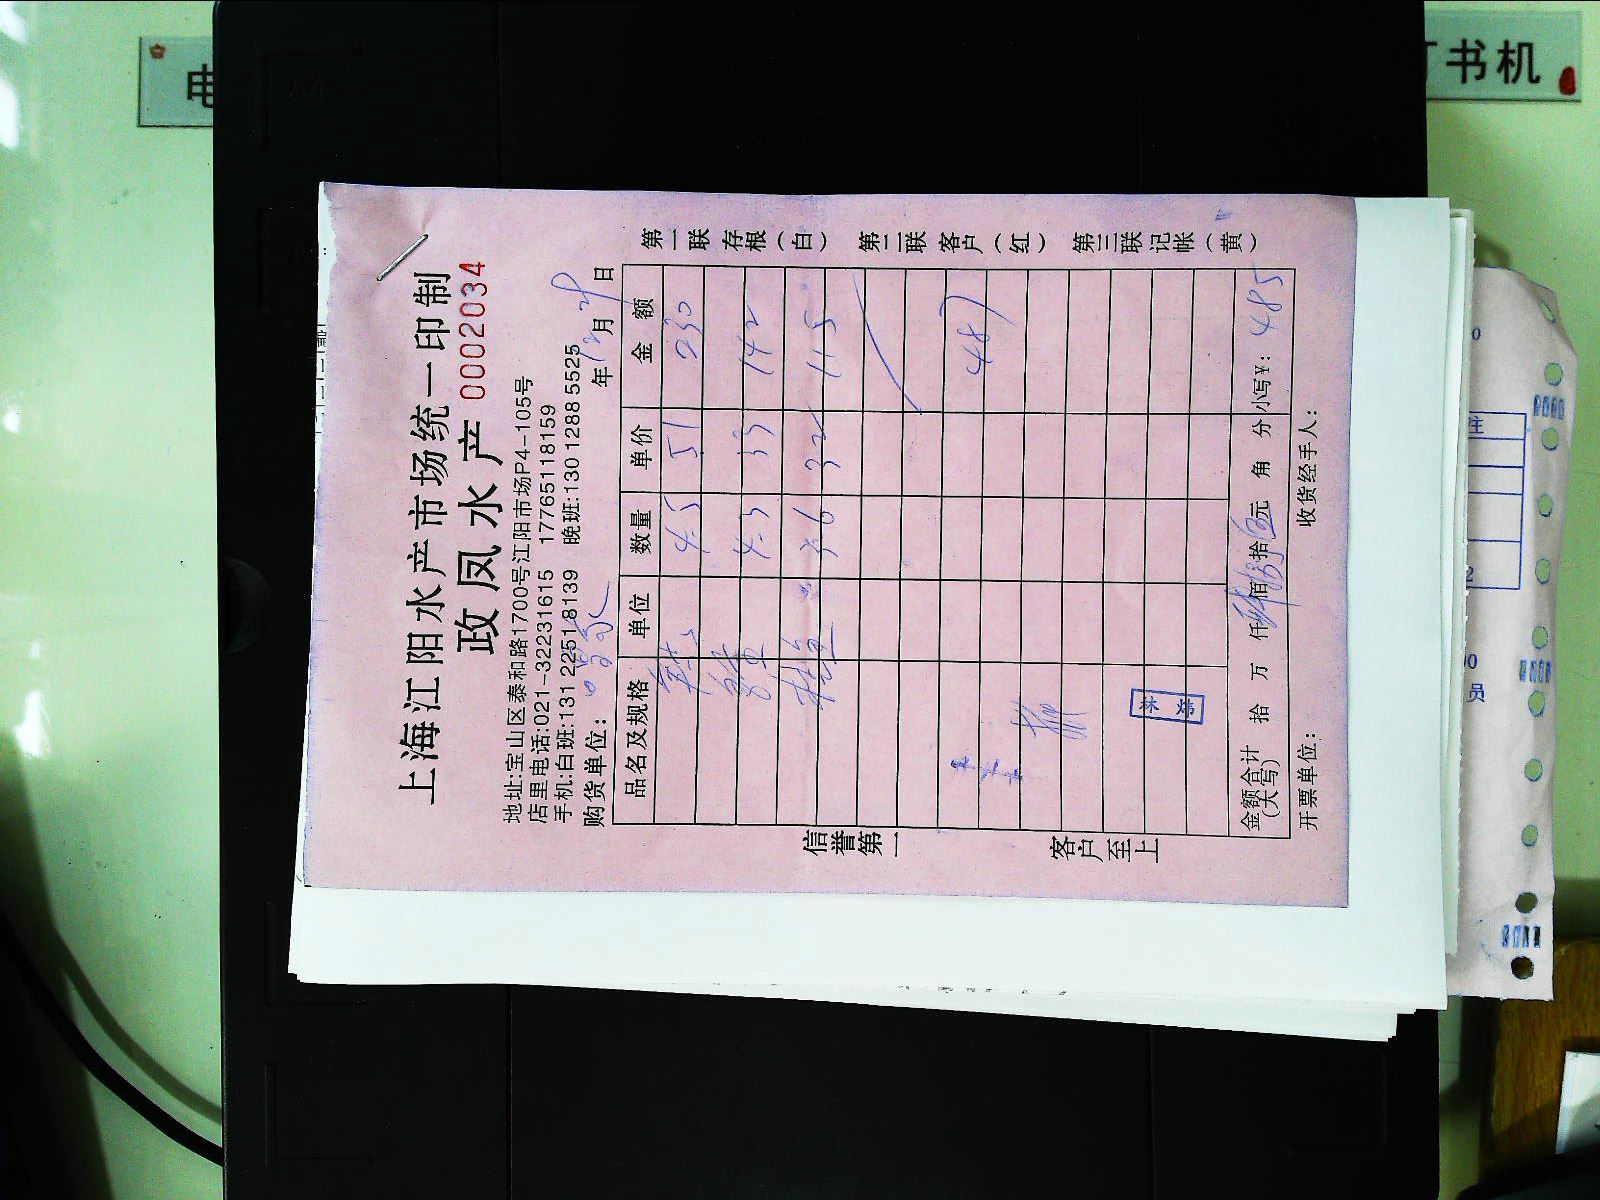 上海江阳水产市场统一印制
政凤水产 0002034
地址:宝山区泰和路1700号江阳市场P4-105号
店里电话:021-32231615 17765118159
手机:白班:131 2251 8139 晚班:130 1288 5525
购货单位: 年12月29日
品名及规格 单位 数量 单价 金额
4.5 51 230
4.3 33 142
3.6 32 115
487
金额合计(大写) 拾 万 仟 肆佰捌拾伍元 角 分 小写¥: 485
开票单位: 收货经手人:
信誉第一
客户至上
第一联 存根(白)
第二联 客户(红)
第三联 记帐(黄)
书机